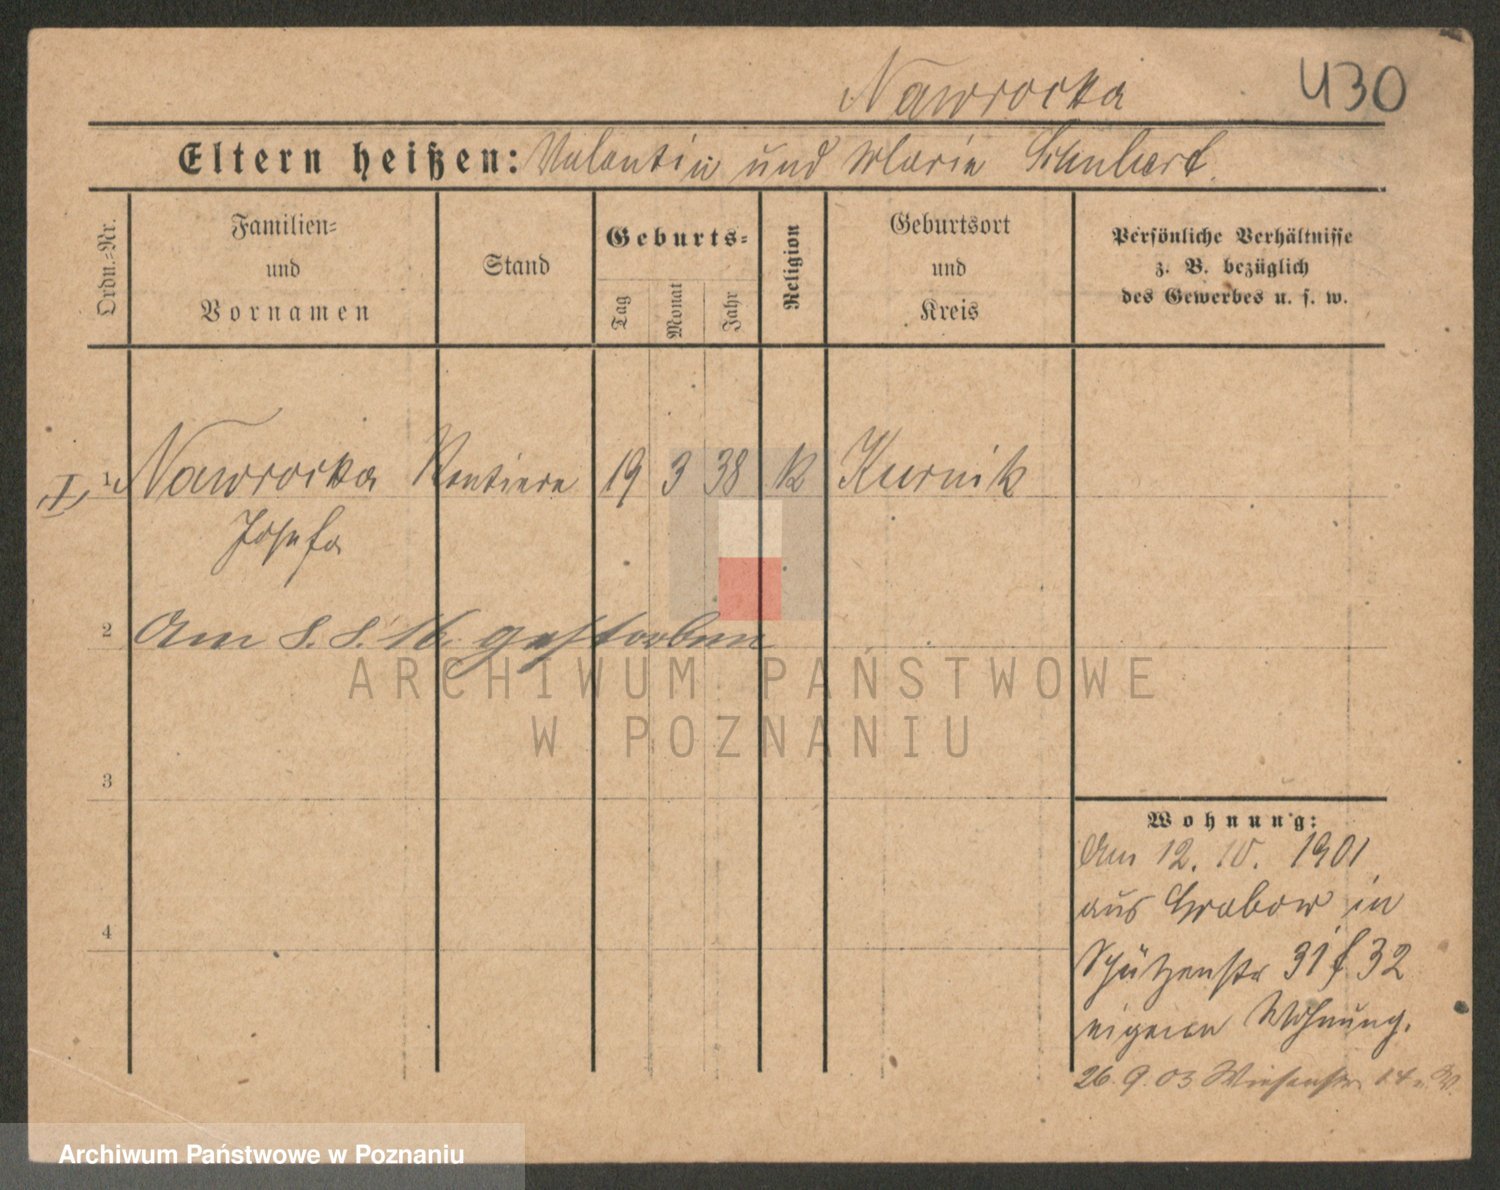 Nawrocka 430
Eltern heißen: Valentin und Marie Schubert.
Ordn.-Nr.
Familien-
und
Vornamen
Stand
Geburts-
Tag
Monat
Jahr
Religion
Geburtsort
und
Kreis
Persönliche Verhältnisse
z. B. bezüglich
des Gewerbes u. s. w.
I, 1 Nawrocka Rentiere 19 3 38 K Kurnik
Josefa
2 Am 8. 8. 16. gestorben
ARCHIWUM PAŃSTWOWE
W POZNANIU
3
4
Wohnung:
Am 12. 10. 1901
aus Grabow in
Schützenstr 31 f 32
eigene Wohnung.
26. 9. 03 Wiesenstr. 14
Archiwum Państwowe w Poznaniu